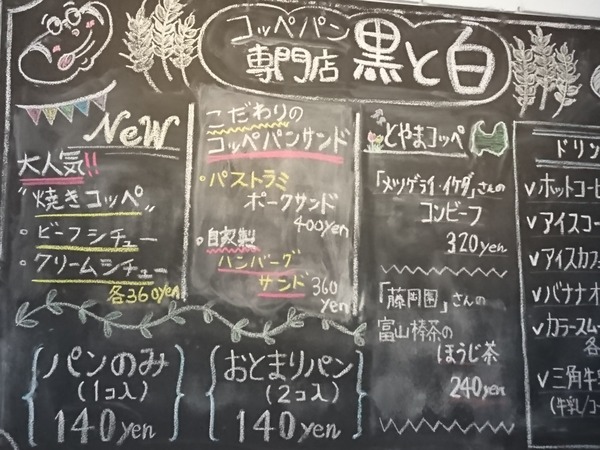 コッペパン
専門店 黒と白
NeW
大人気!!
"焼きコッペ"
・ビーフシチュー
・クリームシチュー
各360yen
こだわりの
コッペパンサンド
・パストラミ
ポークサンド
400yen
・自家製
ハンバーグ
サンド360
yen
とやまコッペ
「メツゲライ・イケダ」さんの
コンビーフ
320yen
「藤岡園」さんの
富山棒茶の
ほうじ茶
240yen
ドリン
∨ホットコーヒ
∨アイスコー
∨アイスカフ
∨バナナオ
∨カラースムー
各
∨三角牛乳
(牛乳/コー
パンのみ
(1コ入)
140yen
おとまりパン
(2コ入)
140yen